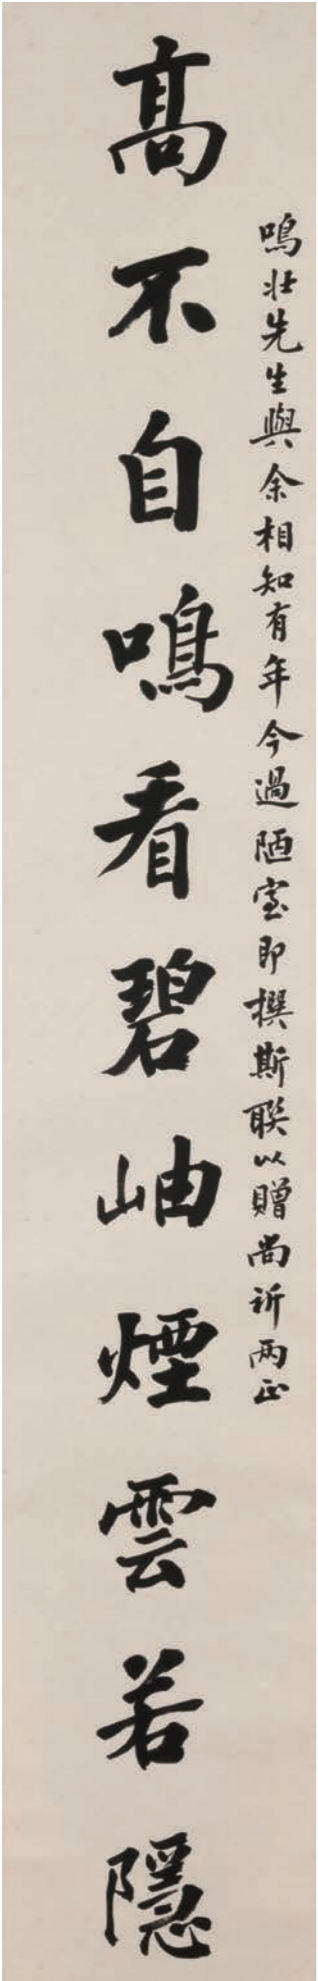 鳴壯先生與余相知有年今過陋室即撰斯聯以贈尚祈兩正
高不自鳴看碧岫煙雲若隱